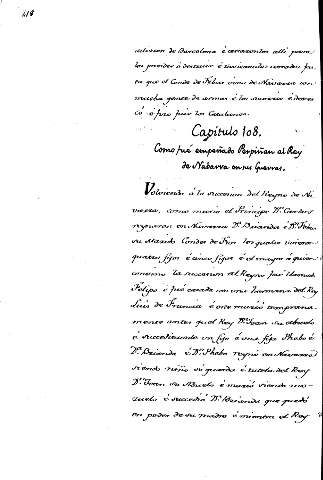 418
delixion de Barcelona é cercaronlos alli para
los prender ó destruir é tuvieranlos cercados fas
ta que el Conde de Foix vino de Navarra con
mucha gente de armas é los socorrió é decer
có é fizo fuir los Catalanes.
Capitulo 108.
Como fué empeñado Perpiñan al Rey
de Nabarra en sus Guerras.
Volviendo á la succesion del Reyno de Na
varra, como murió el Principe Dn. Carlos
reynaron en Navarra Da. Leonor é Dn.
su Marido Conde de Foix los quales vieron
quatro fijos é cinco fijas é el mayor á quien
convino la succesion al Reyno fué llamado
é fué casado con una hermana del Rey
Luis de Francia é este murió temprana
mente antes que el Rey Dn. Joan su abuelo
é succedieronle un fijo é una fija Phebo é
Da. é Dn. Phebo reynó en Navarra
siendo niño so guarda é tutela del Rey
Dn. Joan su Abuelo é murió siendo mo
zuelo é succedió Da. que quedó
en poder de su madre é mientra el Rey